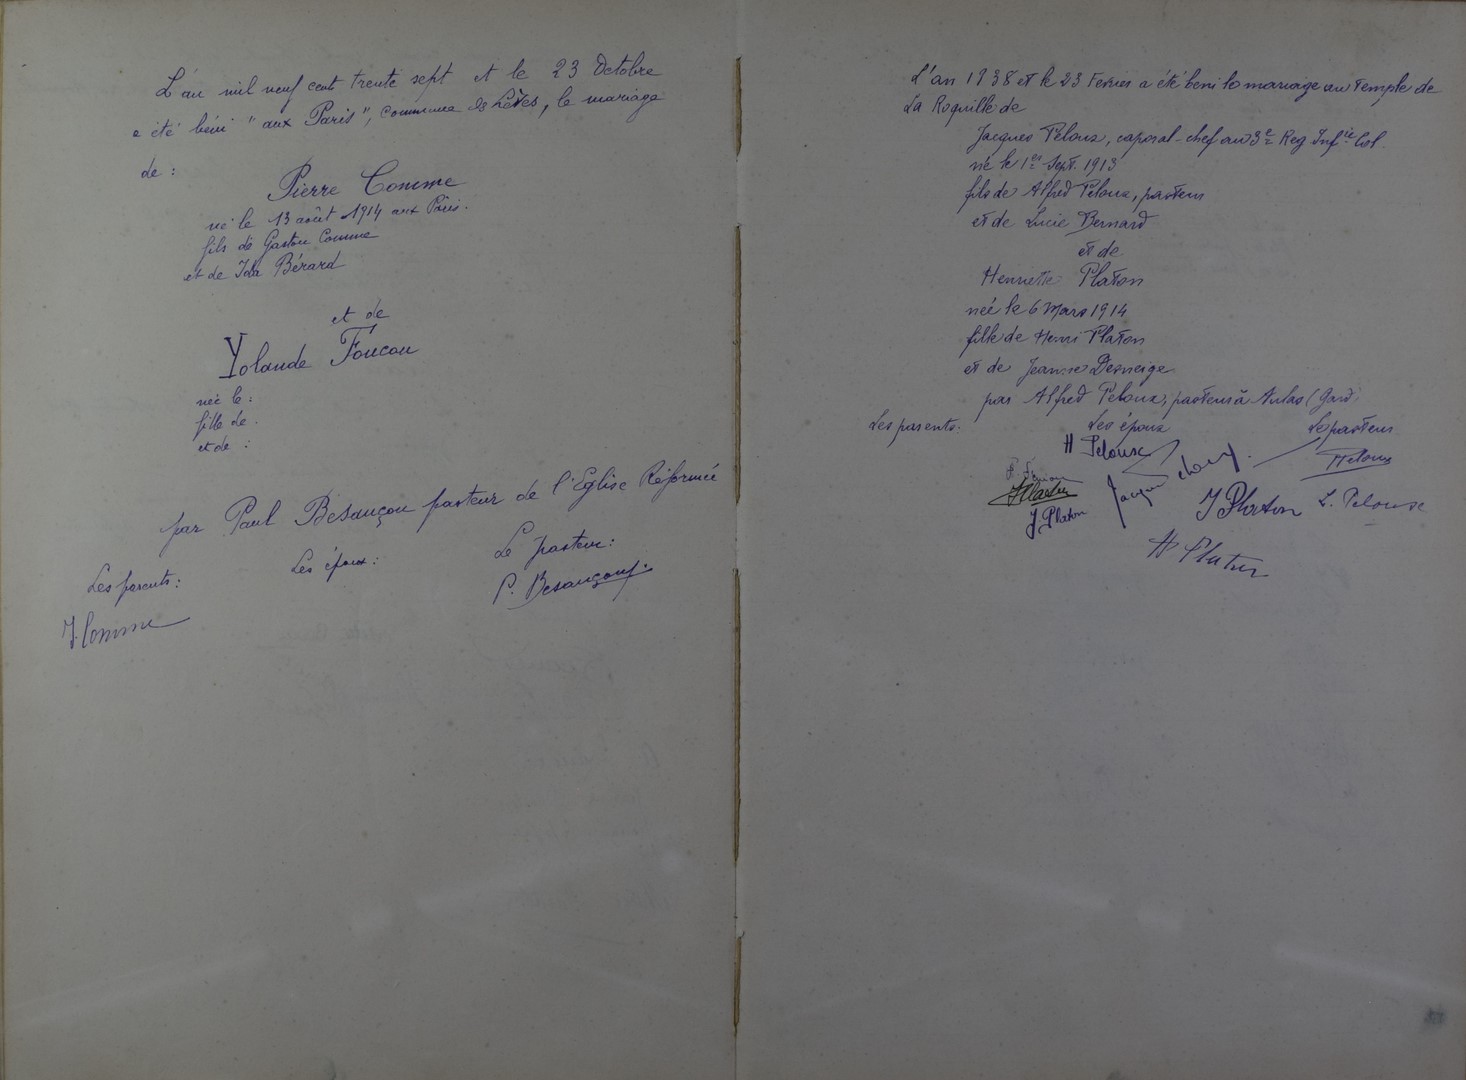 L'an mil neuf cent trente sept et le 23 Octobre
a été béni "aux Paris", commune de Lèves, le mariage
de :
Pierre Comme
né le 13 août 1914 aux Pâris.
fils de Gaston Comme
et de Ida Bérard
et de
Yolande Foucou
née le :
fille de .
et de :
par Paul Besançon pasteur de l'Eglise Réformée
Les parents : Les époux : Le pasteur :
P. Besançon
Comme
L'an 1938 et le 23 Fevrier a été beni le mariage au Temple de
La Roquille de
Jacques Peloux, caporal-chef au 3e Reg Infie Col.
né le 1er Sept. 1913
fils de Alfred Peloux, pasteur
et de Lucie Bernard
et de
Henriette Platon
née le 6 Mars 1914
fille de Henri Platon
et de Jeanne Desneige
par Alfred Peloux, pasteur à Aulas (Gard)
Les parents : Les époux Le pasteur
H Pelouse
J. Platon
J Platon L. Pelouse
H Platon